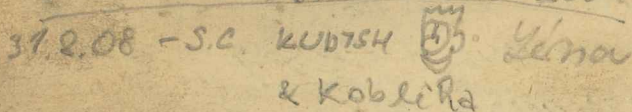 31.8.08 - S.C. KUDTSH Léna
& KobliRa